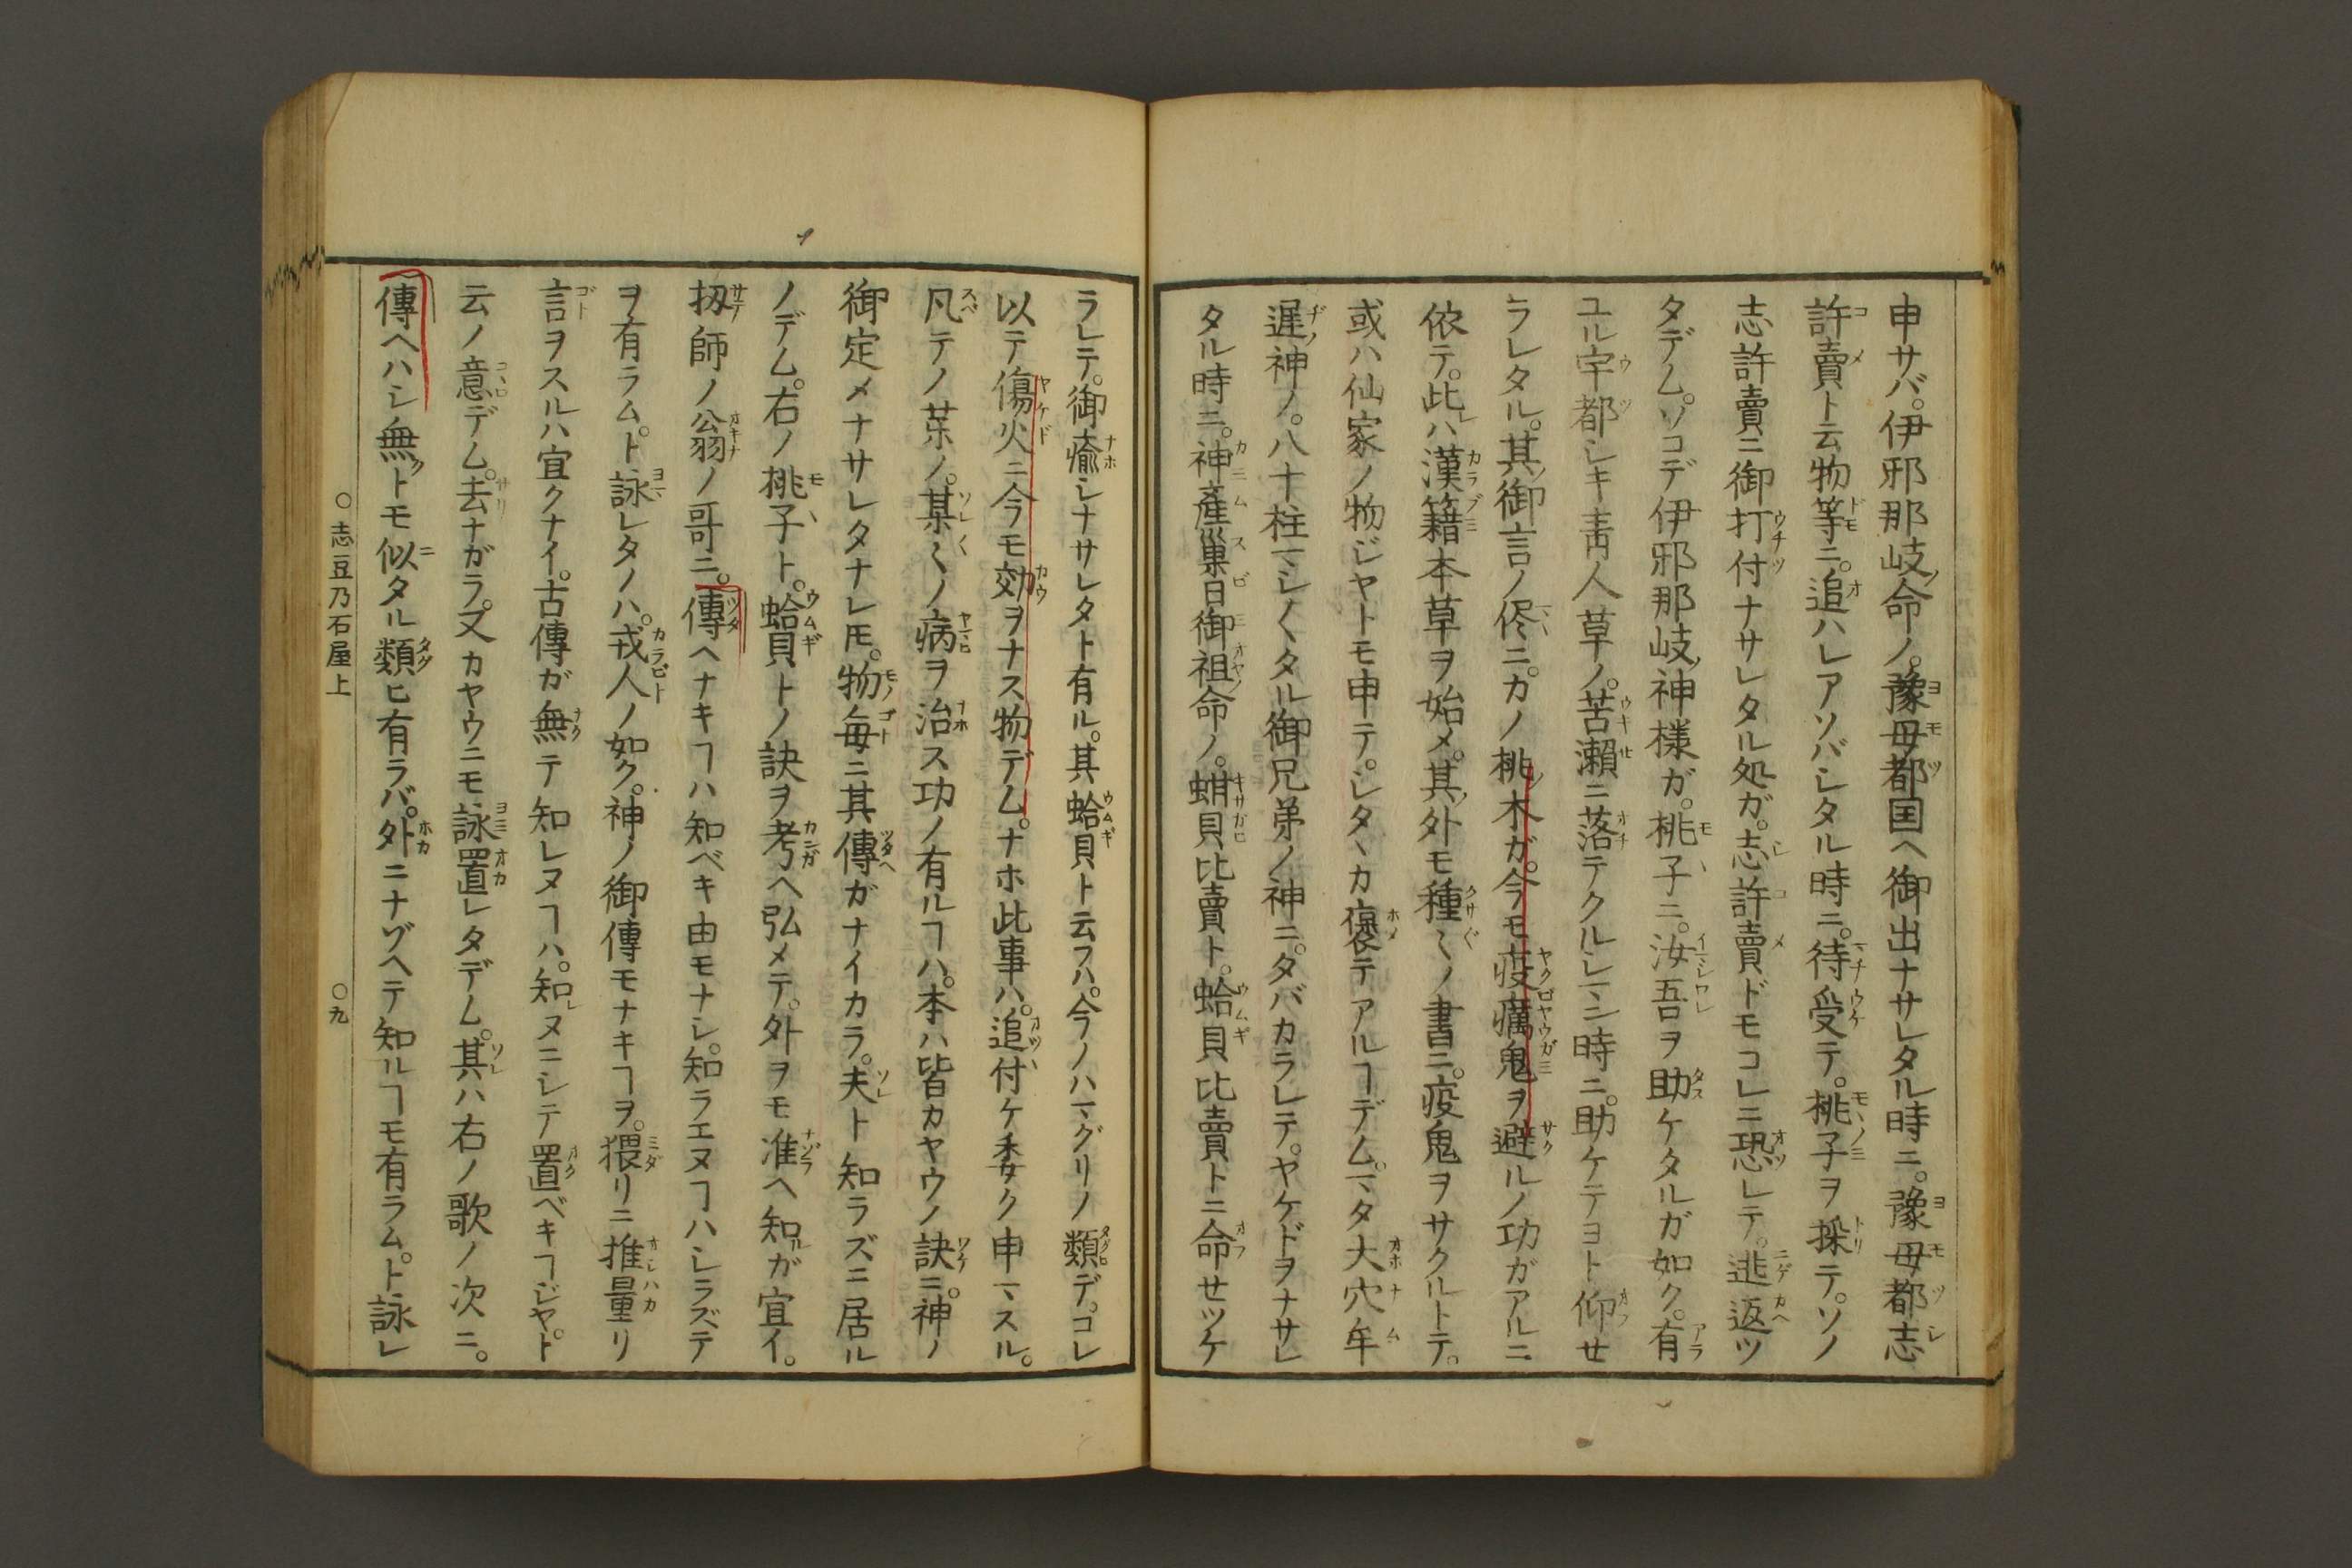 申サバ。伊邪那岐ノ命ノ。豫母都国ヘ御出ナサレタル時ニ。豫母都志
許賣ト云物等ニ。追ハレアソバシタル時ニ。待受テ。桃子ヲ採テ。ソノ
志許賣ニ御打付ナサレタル処ガ。志許賣ドモコレニ恐レテ。逃返ツ
タデム。ソコデ伊邪那岐ノ神様ガ。桃子ニ。汝吾ヲ助ケタルガ如ク。有
ユル宇都シキ青人草ノ。苦瀬ニ落テクルシマン時ニ。助ケテヨト仰せ
ラレタル。其ノ御言ノ侭ニ。カノ桃ノ木ガ。今モ疫癘鬼ヲ避ルノ功ガアルニ
依テ。此レハ漢籍本草ヲ始メ。其ノ外モ種〻ノ書ニ。疫鬼ヲサクルトテ。
或ハ仙家ノ物ジヤトモ申テ。シタヽカ褒テアルヿデム。マタ大穴牟
遅ノ神ノ。八十柱マシ〱タル御兄弟ノ神ニ。タバカラレテ。ヤケドヲナサレ
タル時ニ。神産巣日御祖命ノ。蚶貝比賣ト。蛤貝比賣トニ命せツケ
ラレテ。御療シナサレタト有ル。其蛤貝ト云フハ。今ノハマグリノ類デ。コレ
以テ傷火ニ今モ効ヲナス物デム。ナホ此事ハ。追付ケ委ク申マスル。
凡テノ薬ノ。某〱ノ病ヲ治ス功ノ有ルヿハ。本ハ皆カヤウノ訣ニ。神ノ
御定メナサレタナレ𪜈。物毎ニ其傳ガナイカラ。夫ト知ラズニ居ル
ノデム。右ノ桃子ト。蛤貝トノ訣ヲ考ヘ弘メテ。外ヲモ准ヘ知ルガ宜イ。
扨師ノ翁ノ哥ニ。傳ヘナキヿハ知ベキ由モナシ。知ラエヌヿハシラズテ
ヲ有ラム。ト詠レタノハ。戎人ノ如ク。神ノ御傳モナキヿヲ。猥リニ推量リ
言ヲスルハ宜クナイ。古傳ガ無テ知レヌヿハ。知レヌニシテ置ベキヿジヤ。ト
云ノ意デム。去ナガラ。又カヤウニモ詠置レタデム。其ハ右ノ歌ノ次ニ。
傳ヘハシ無クトモ似タル類ヒ有ラバ。外ニナゾヘテ知ルヿモ有ラム。ト詠レ
○志豆乃石屋上　○九